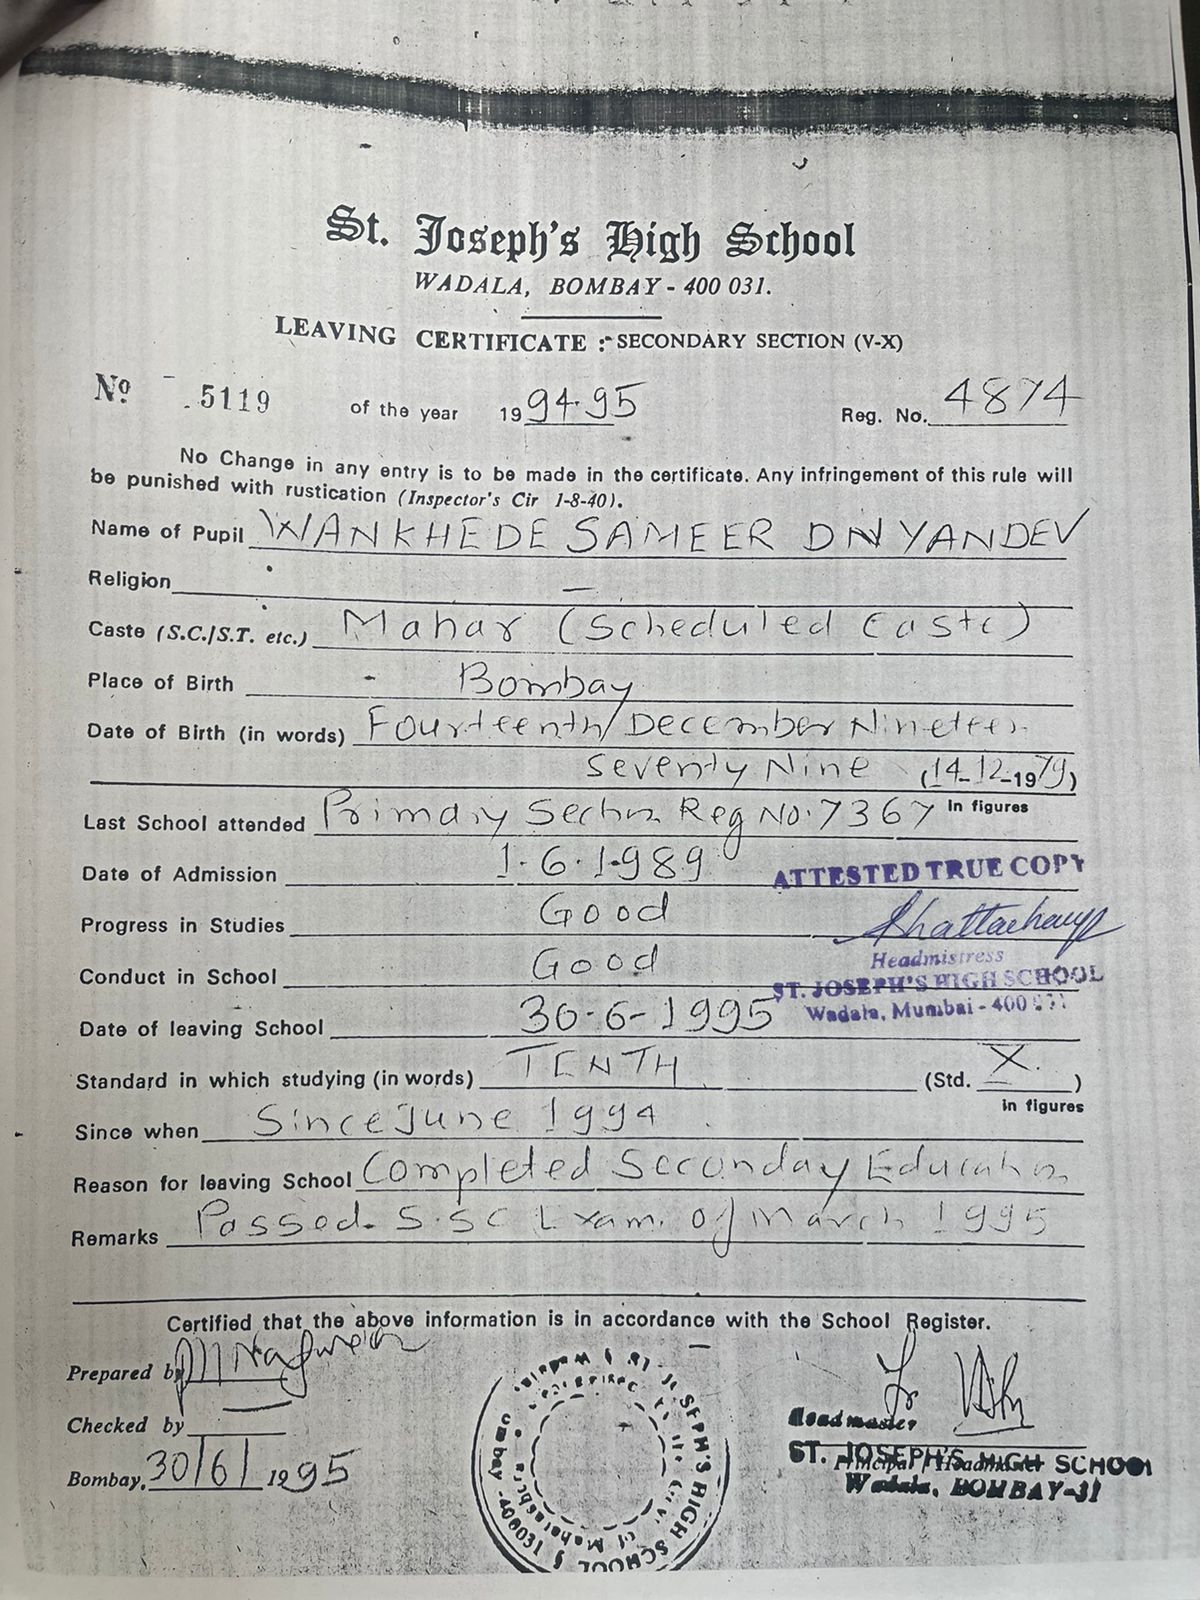 St. Joseph's High School
WADALA, BOMBAY - 400 031.
LEAVING CERTIFICATE :- SECONDARY SECTION (V-X)
No. 5119 of the year 1994-95 Reg. No. 4874
No Change in any entry is to be made in the certificate. Any infringement of this rule will
be punished with rustication (Inspector's Cir 1-8-40).
Name of Pupil WANKHEDE SAMEER DNYANDEV
Religion —
Caste (S.C./S.T. etc.) Mahar (Scheduled Caste)
Place of Birth - Bombay
Date of Birth (in words) Fourteenth December Nineteen
Seventy Nine (14-12-1979)
In figures
Last School attended Primary Section Reg No. 7367
Date of Admission 1-6-1989
ATTESTED TRUE COPY
Progress in Studies Good
Bhattacharya
Headmistress
Conduct in School Good
ST. JOSEPH'S HIGH SCHOOL
Wadala, Mumbai - 400 031
Date of leaving School 30-6-1995
Standard in which studying (in words) TENTH (Std. X.)
in figures
Since when Since June 1994
Reason for leaving School Completed Seconday Education
Remarks Passed S.S.C Exam. of March 1995
Certified that the above information is in accordance with the School Register.
Prepared by
Checked by
Bombay, 30/6/1995
Headmaster
Principal / Headmaster
ST. JOSEPH'S HIGH SCHOOL
Wadala, BOMBAY-31
ST. JOSEPH'S HIGH SCHOOL
Bombay - 400031
Govt. of Maharashtra